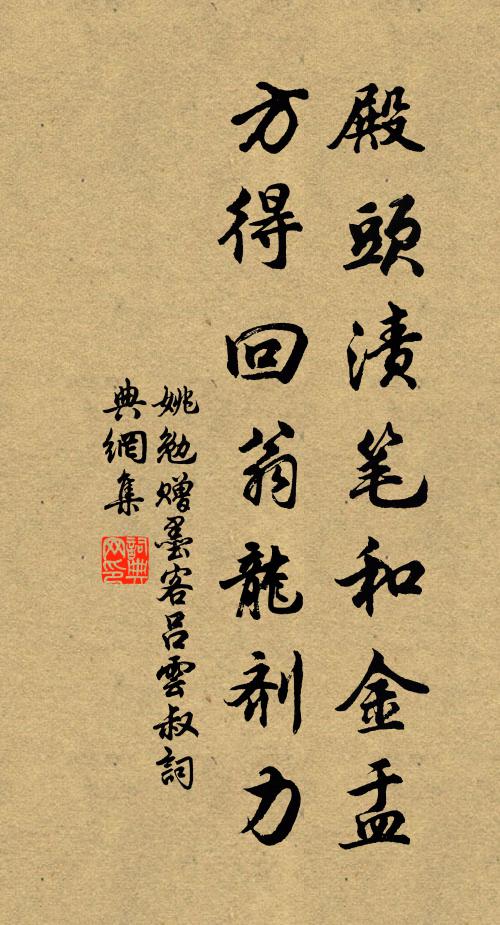 殿頭漬笔和金盂
方得回翁龍剂力
姚勉赠墨客吕雲叔詞
典網集
詞典网印